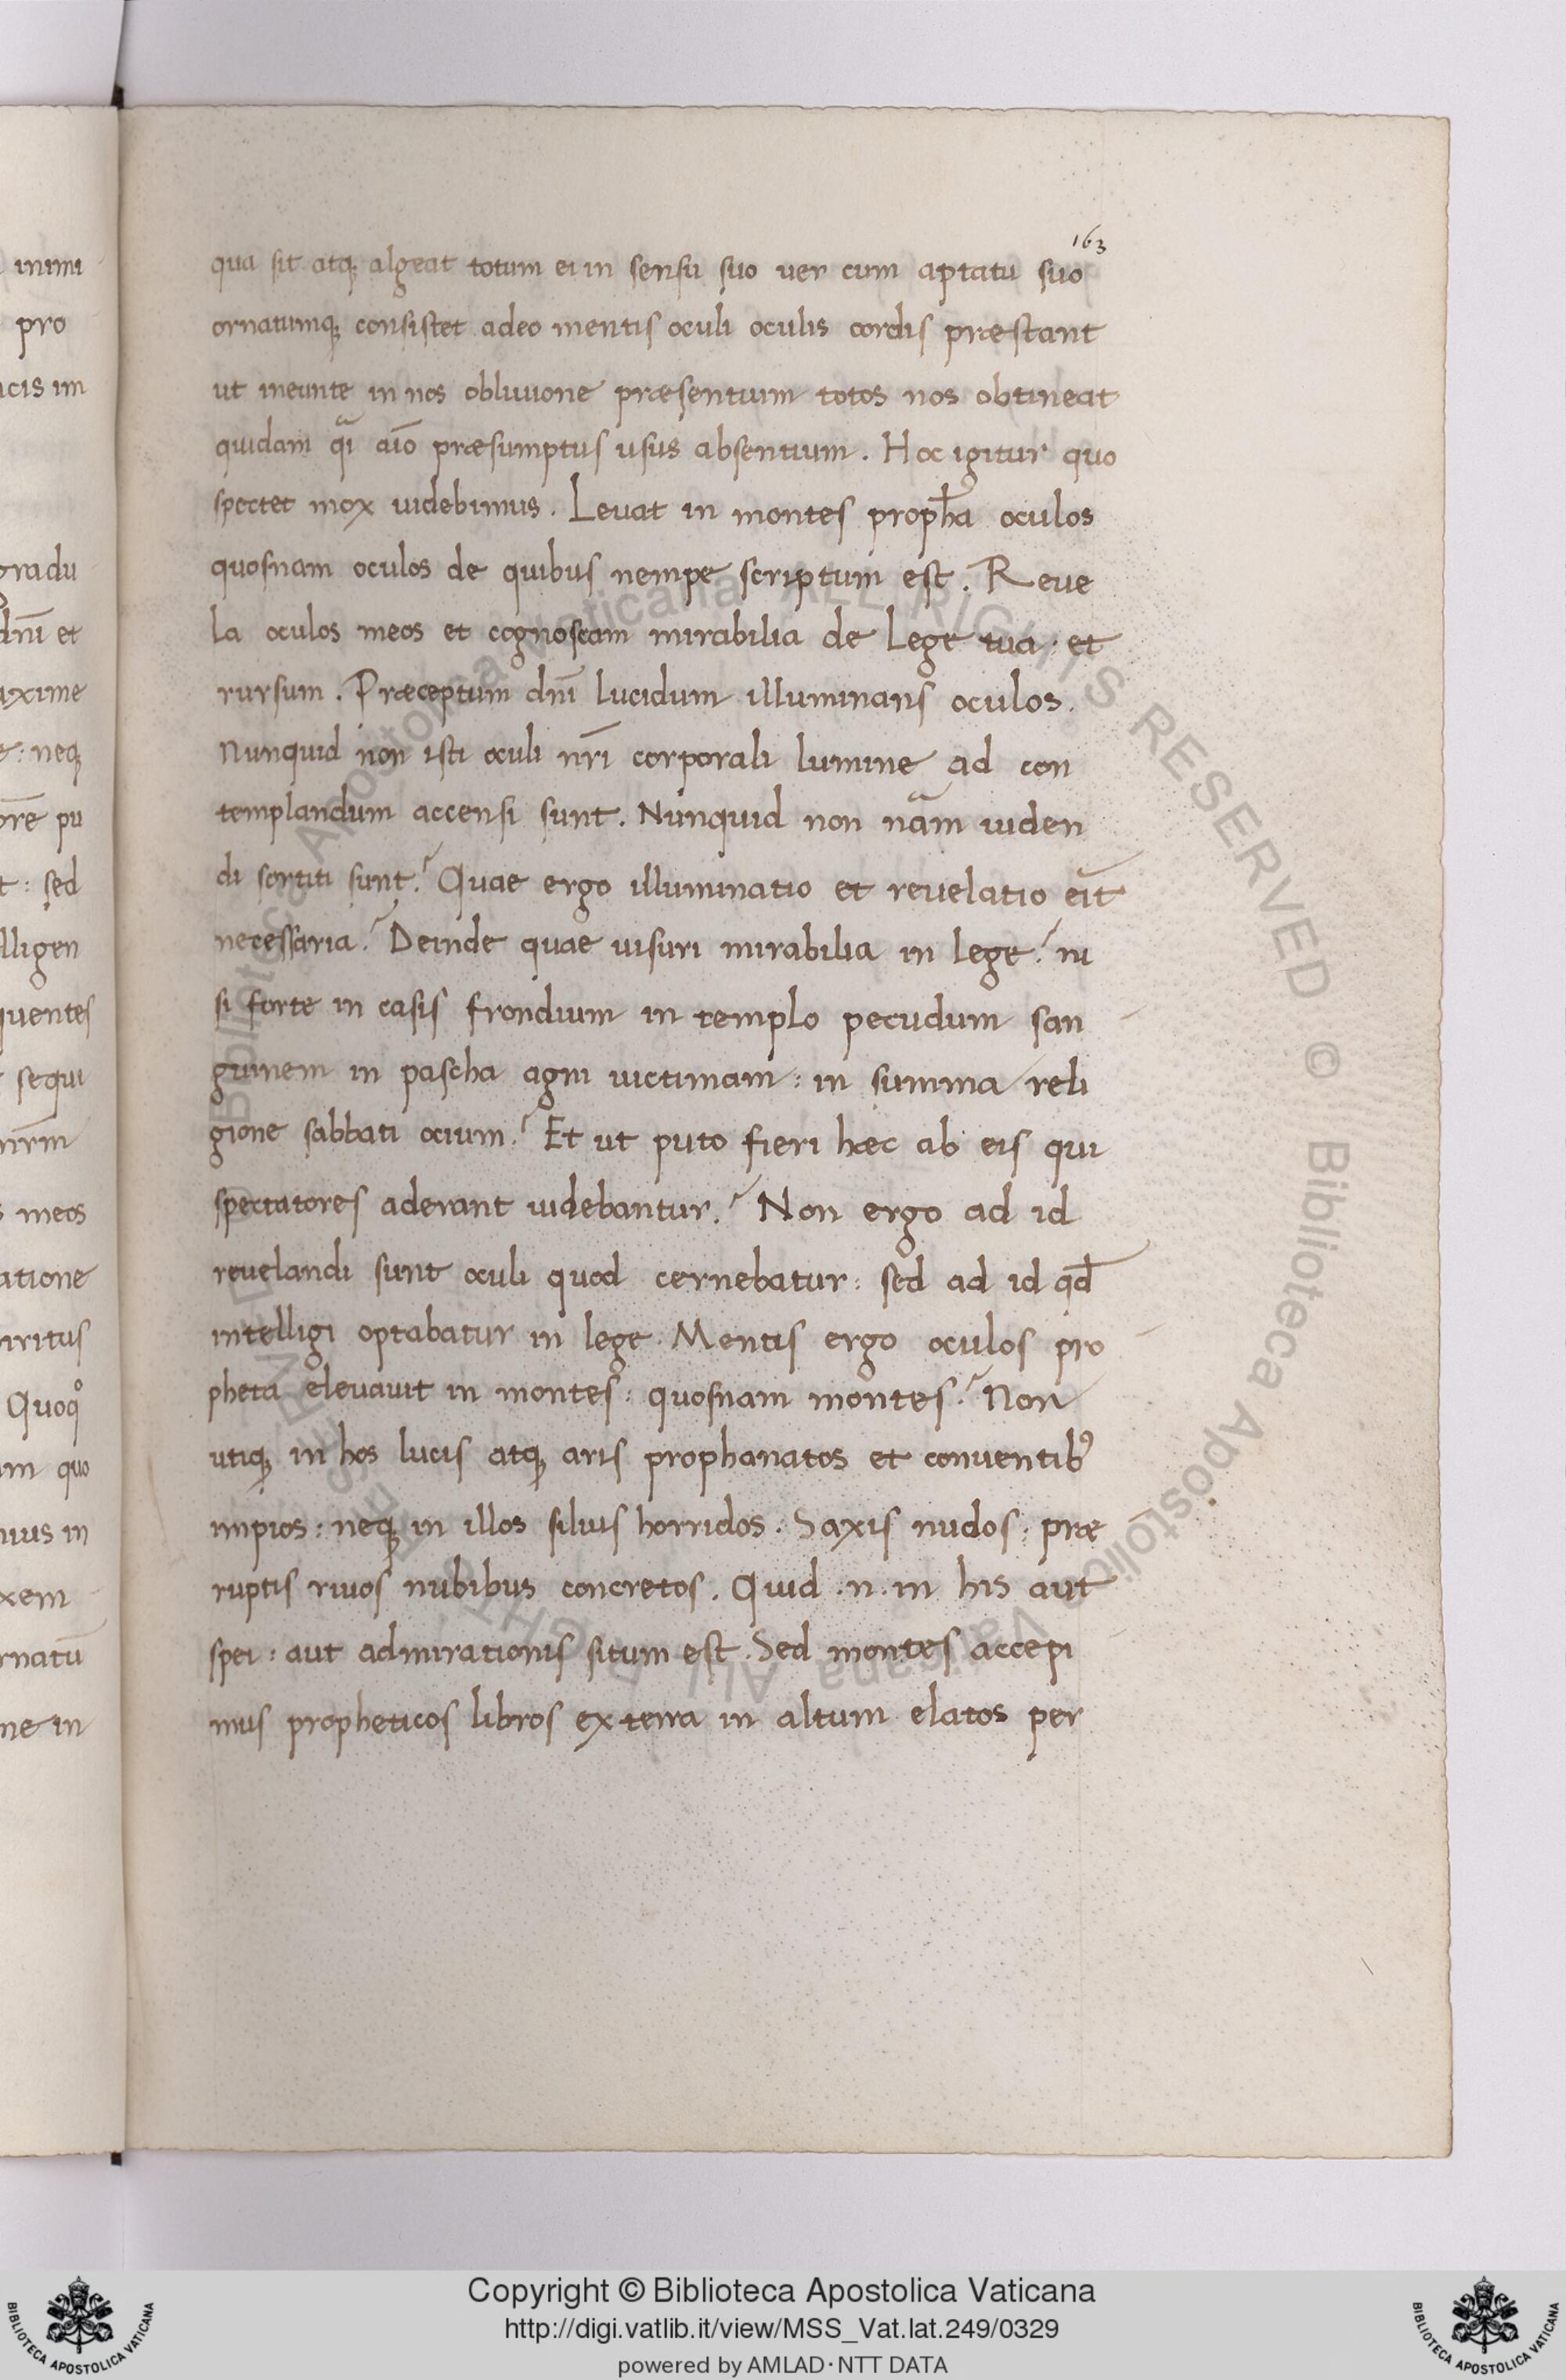 163
qua sit atq; algeat totum ei in sensu suo uer cum aptatu suo
ornatumq; consistet adeo mentis oculi oculis cordis præstant
ut ineunte in nos obliuione præsentium totos nos obtineat
quidam q̃i aīo præsumptus usus absentium. Hoc igitur quo
spectet mox uidebimus. Leuat in montes proph̄a oculos
quosnam oculos de quibus nempe scriptum est. Reue
la oculos meos et cognoscam mirabilia de Lege tua: et
rursum. Præceptum dnī lucidum illuminans oculos.
Nunquid non isti oculi nr̄i corporali lumine ad con
templandum accensi sunt. Nunquid non nãm uiden
di sortiti sunt? Quae ergo illuminatio et reuelatio eīt
necessaria? Deinde quae uisuri mirabilia in lege? ni
si forte in casis frondium in templo pecudum san
guinem in pascha agni uictimam: in summa reli
gione sabbati ocium? Et ut puto fieri hæc ab eis qui
spectatores aderant uidebantur? Non ergo ad id
reuelandi sunt oculi quod cernebatur: sed ad id qd̄
intelligi optabatur in lege. Mentis ergo oculos pro
pheta eleuauit in montes: quosnam montes? Non
utiq; in hos lucis atq; aris prophanatos et conuentib9
impios: neq; in illos siluis horridos. Saxis nudos: præ
ruptis riuos nubibus concretos. Quid .n. in his aut
spei: aut admirationis situm est. Sed montes accepi
mus propheticos libros ex terra in altum elatos per
inimi
pro
gradu
dnī et
neq;
sed
sequi
meos
Quoq°
quo
Copyright © Biblioteca Apostolica Vaticana
http://digi.vatlib.it/view/MSS_Vat.lat.249/0329
powered by AMLAD·NTT DATA
BIBLIOTECA APOSTOLICA VATICANA
BIBLIOTECA APOSTOLICA VATICANA